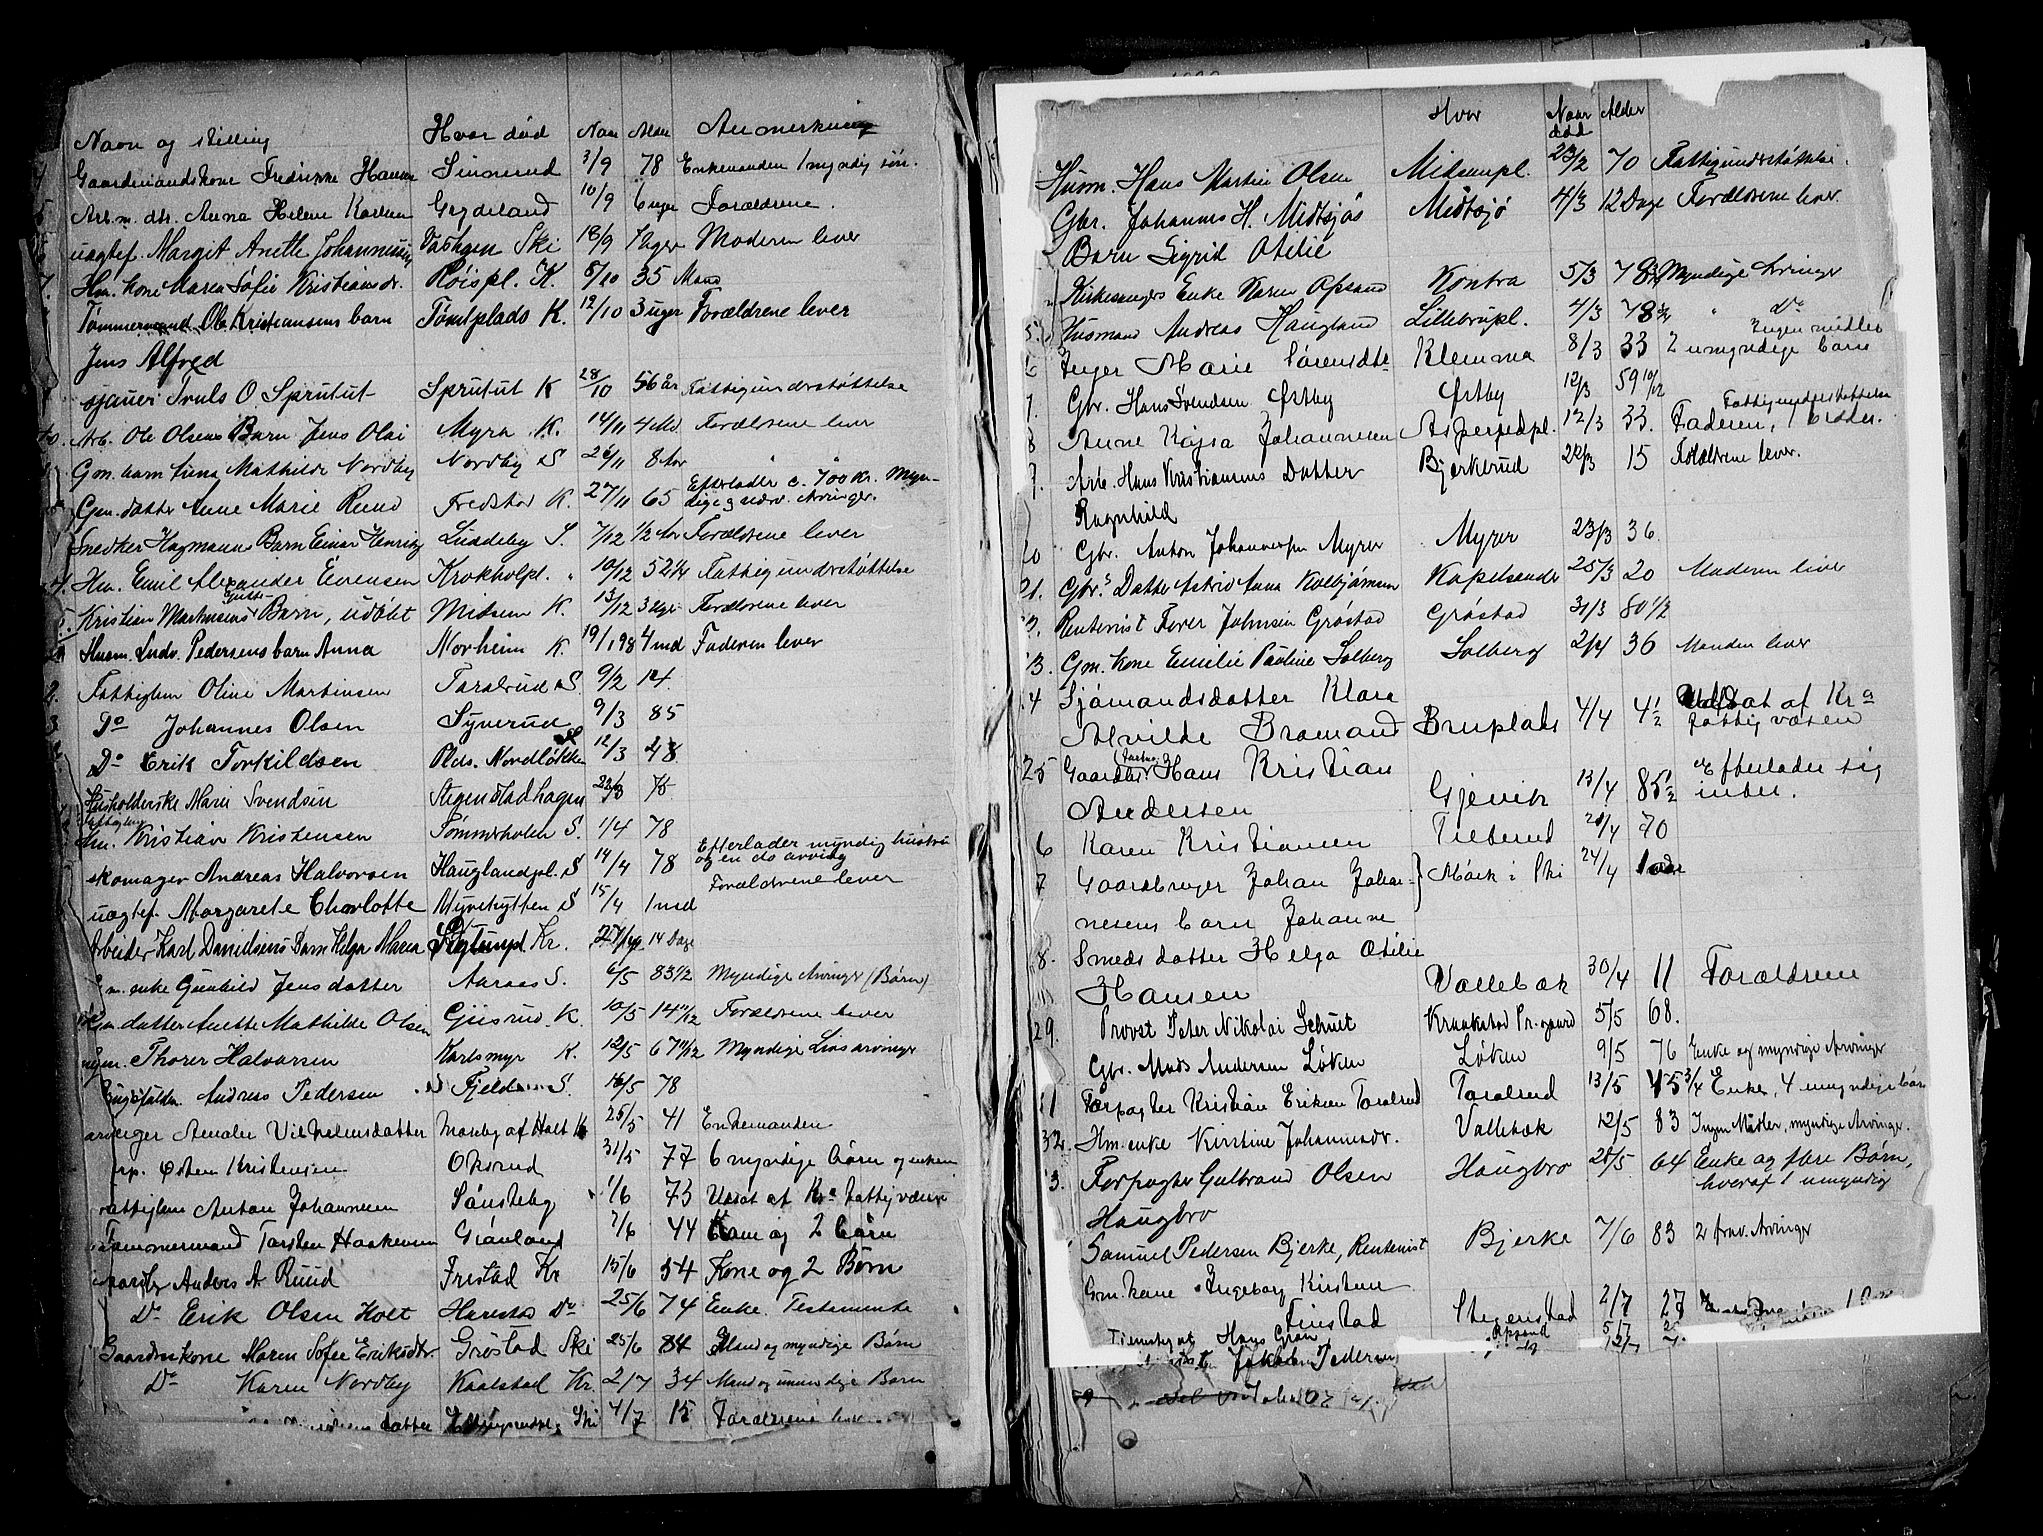 Navn og stilling Hvor død Naar Alder Anmerkning
Gaardmandskone Fredrikke Hansen Sinnerud 3/9 78 Enkemanden 1 myndig søn.
Arb.m. dtr. Anna Helene Karlsen 10/9 6 uger Forældrene.
uægtef. Margit Anette Ski 18/9 Moderen lever
Hm. kone Maren Sofie Kristiansdr. Røispl. K. 5/10 35 Mand
Tømmermand Ole Kristiansens barn K. 12/10 3 uger Forældrene lever
Jens Alfred
Truls O Sprutut Sprutut K 28/10 56 år Fattigunderstøttelse
Arb. Ole Olsens Barn Jens Olai Myra K. 14/11 4 Md. Forældrene lever
Gm. barn Mathilde Nordby Nordby S 26/11 8 Aar "
Efterlader c. 700 Kr. Myn-
Gm. datter Anne Marie Ruud Frestad K. 27/11 65 dige Arvinger.
Snedker Hagmanns Barn Einar Henrik S. 7/12 1/2 Aar Forældrene lever
Hm. Emil Alexander Evensen Krokholpl. " 10/12 52 1/4 Fattigunderstøttelse
Kristian Martinsens Barn, udøbt Midsem K. 13/12 Forældrene lever
Husm. Ludv. Pedersens barn Anna Norheim K. 19/1 98 4 md Faderen lever
Fattiglem Oline Martinsen Taralrud S 9/2 14.
Do Johannes Olsen Synerud 9/3 85
Do Erik Torkildsen Plds. Nordløkken 12/3 28
Husholderske Marie Svendsen Stegenstadhagen 75
Hm. Kristian Kristensen Sommerholen S. 1/4 78
Efterlader myndig hustru
skomager Andreas Halvorsen Hauglandpl. S 14/4 78 og en do arving
uægtef. Margarete Charlotte Myrehytten S 15/4 1 md Forældrene lever
Arbeider Karl Danielsens Barn Helga Maria Kr. 14 Dage
Gm. enke Gunhild Jensdatter Aaraas S. 6/5 83 1/2 Myndige Arvinger (Børn)
Gm. datter Anette Mathilde Olsen Gjisrud K. 10/5 14 11/12 Forældrene lever
Thorer Halvorsen Karlsmyr K. 12/5 67 11/12 Myndige Livsarvinger
Andreas Pedersen S. 16/5 78
Amalie Vilhelmsdatter af Holt K 25/5 41 Enkemanden
Østen Kristensen Oksrud 31/5 77 6 myndige børn og enken
Fattiglem Anton Johannesen Sønsteby 1/6 73 Udsat af Kra fattigvæsen
Tømmermand Torsten Haakensen Grønland 7/6 44 Kone og 2 børn
Anders A. Ruud Frestad Kr 15/6 54 Kone og 2 Børn
Do Erik Olsen Holt Harestad Do 25/6 74 Enke. Testamente
Gaardmkone Maren Sofie Eriksdtr. Grøstad Ski 25/6 84 Mand og myndige Børn
Do Karen Nordby Kaalstad Kr. 2/7 34 Mand og umyndige Børn
datter Ski 4/7 15 Forældrene lever
Hvor Naar død Alder
Husm. Hans Martin Olsen Midsempl. 23/2 70 Fattigunderstøttelse.
Gbr. Johannes H. Midtsjøs Midtsjø 4/3 12 Dage Forældrene lever.
Barn Sigrid Otilie
Kirkesangers Enke Karen Opsand Kontra 5/3 78 Myndige Arvinger
5. Husmand Andreas Haugland Lillebrupl. 4/3 78 " Do
Ingen midler
6 Inger Marie Sørensdtr Klemma 8/3 33 2 umyndige børn
7. Gbr. Hans Svendsen Østby Østby 12/3 59 10/12
Fattigunderstøttelse
8 Anne Kajsa Johannesen 12/3 33. Faderen, 1 broder.
9. Arb. Hans Kristiansens Datter Bjerkerud 22/3 15 Forældrene lever.
Ragnhild
20 Gbr. Anton Johannesen Myrer Myrer 23/3 36.
21. Gbr.s Datter Astrid Anna Kolbjørnsen Kapelsandr 25/3 20 Moderen lever
2. Rentenist Torer Johnsen Grøstad Grøstad 31/3 80 1/2
13. Gm. kone Emilie Pauline Solberg Solberg 2/4 36 Manden lever
14 Sjømandsdatter Klara Udsat af Kra
Alvilde Bramand Bruplads 4/4 4 1/2 fattigvæsen
25 Gaardbr. Hans Kristian Efterlader sig
Andersen Gjevik 13/4 85 1/2 intet.
6 Karen Kristiansen Tieterud 70
7 Gaardbruger Johan Johan- Mørk i Ski 24/4
nesens barn Johanne
8. Smeds datter Helga Otilie
Hansen Vallebæk 30/4 11 Forældrene
29. Provst Peter Nikolai Schult Kraakstad Pr.gaard 5/5 68.
Gbr. Mads Andersen Løken Løken 9/5 76 Enke og myndige Arvinger
31 Forpagter Kristian Eriksen Taralrud Taralrud 13/5 45 3/4 Enke, 4 umyndige børn
32. Hm. enke Kirstine Johannesdr. Vallebæk 12/5 83 Ingen Midler, myndige Arvinger.
3. Forpagter Gulbrand Olsen Haugbro 28/5 64 Enke og flere Børn,
Haugbro hvoraf 1 umyndig
Samuel Pedersen Bjerke, Rentenist Bjerke 7/6 83 2 Arvinger
Gm. kone Ingeborg Kirstine
Finstad Stegenstad 2/7 27
Hans Gran Opsand 5/7
Jakob Pedersen